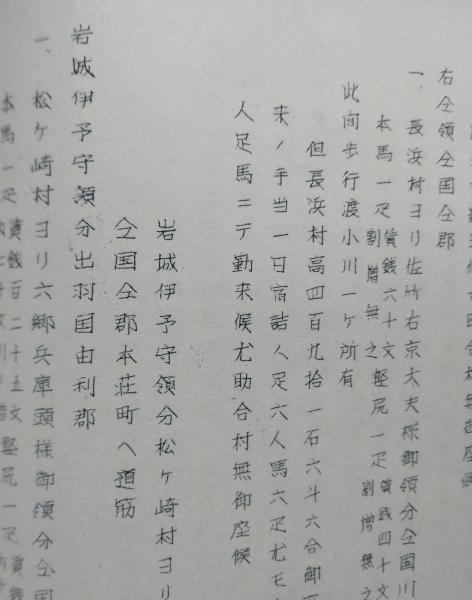 右仝領仝国仝郡
一、長浜村ヨリ佐竹右京大夫様御領分仝国川
本馬一疋賃銭六十文割増無之軽尻一疋賃銭四十文割増無之
此間歩行渡小川一ケ所有
但長浜村高四百九拾一石六斗六合御座
来ノ手当一日宿詰人足六人馬六疋尤モ
人足馬ニテ勤来候尤助合村無御座候
岩城伊予守領分松ヶ崎村ヨリ
仝国仝郡本荘町へ道筋
岩城伊予守領分出羽国由利郡
一、松ヶ崎村ヨリ六郷兵庫頭様御領分仝国
本馬一疋賃銭百二十五文軽尻一疋